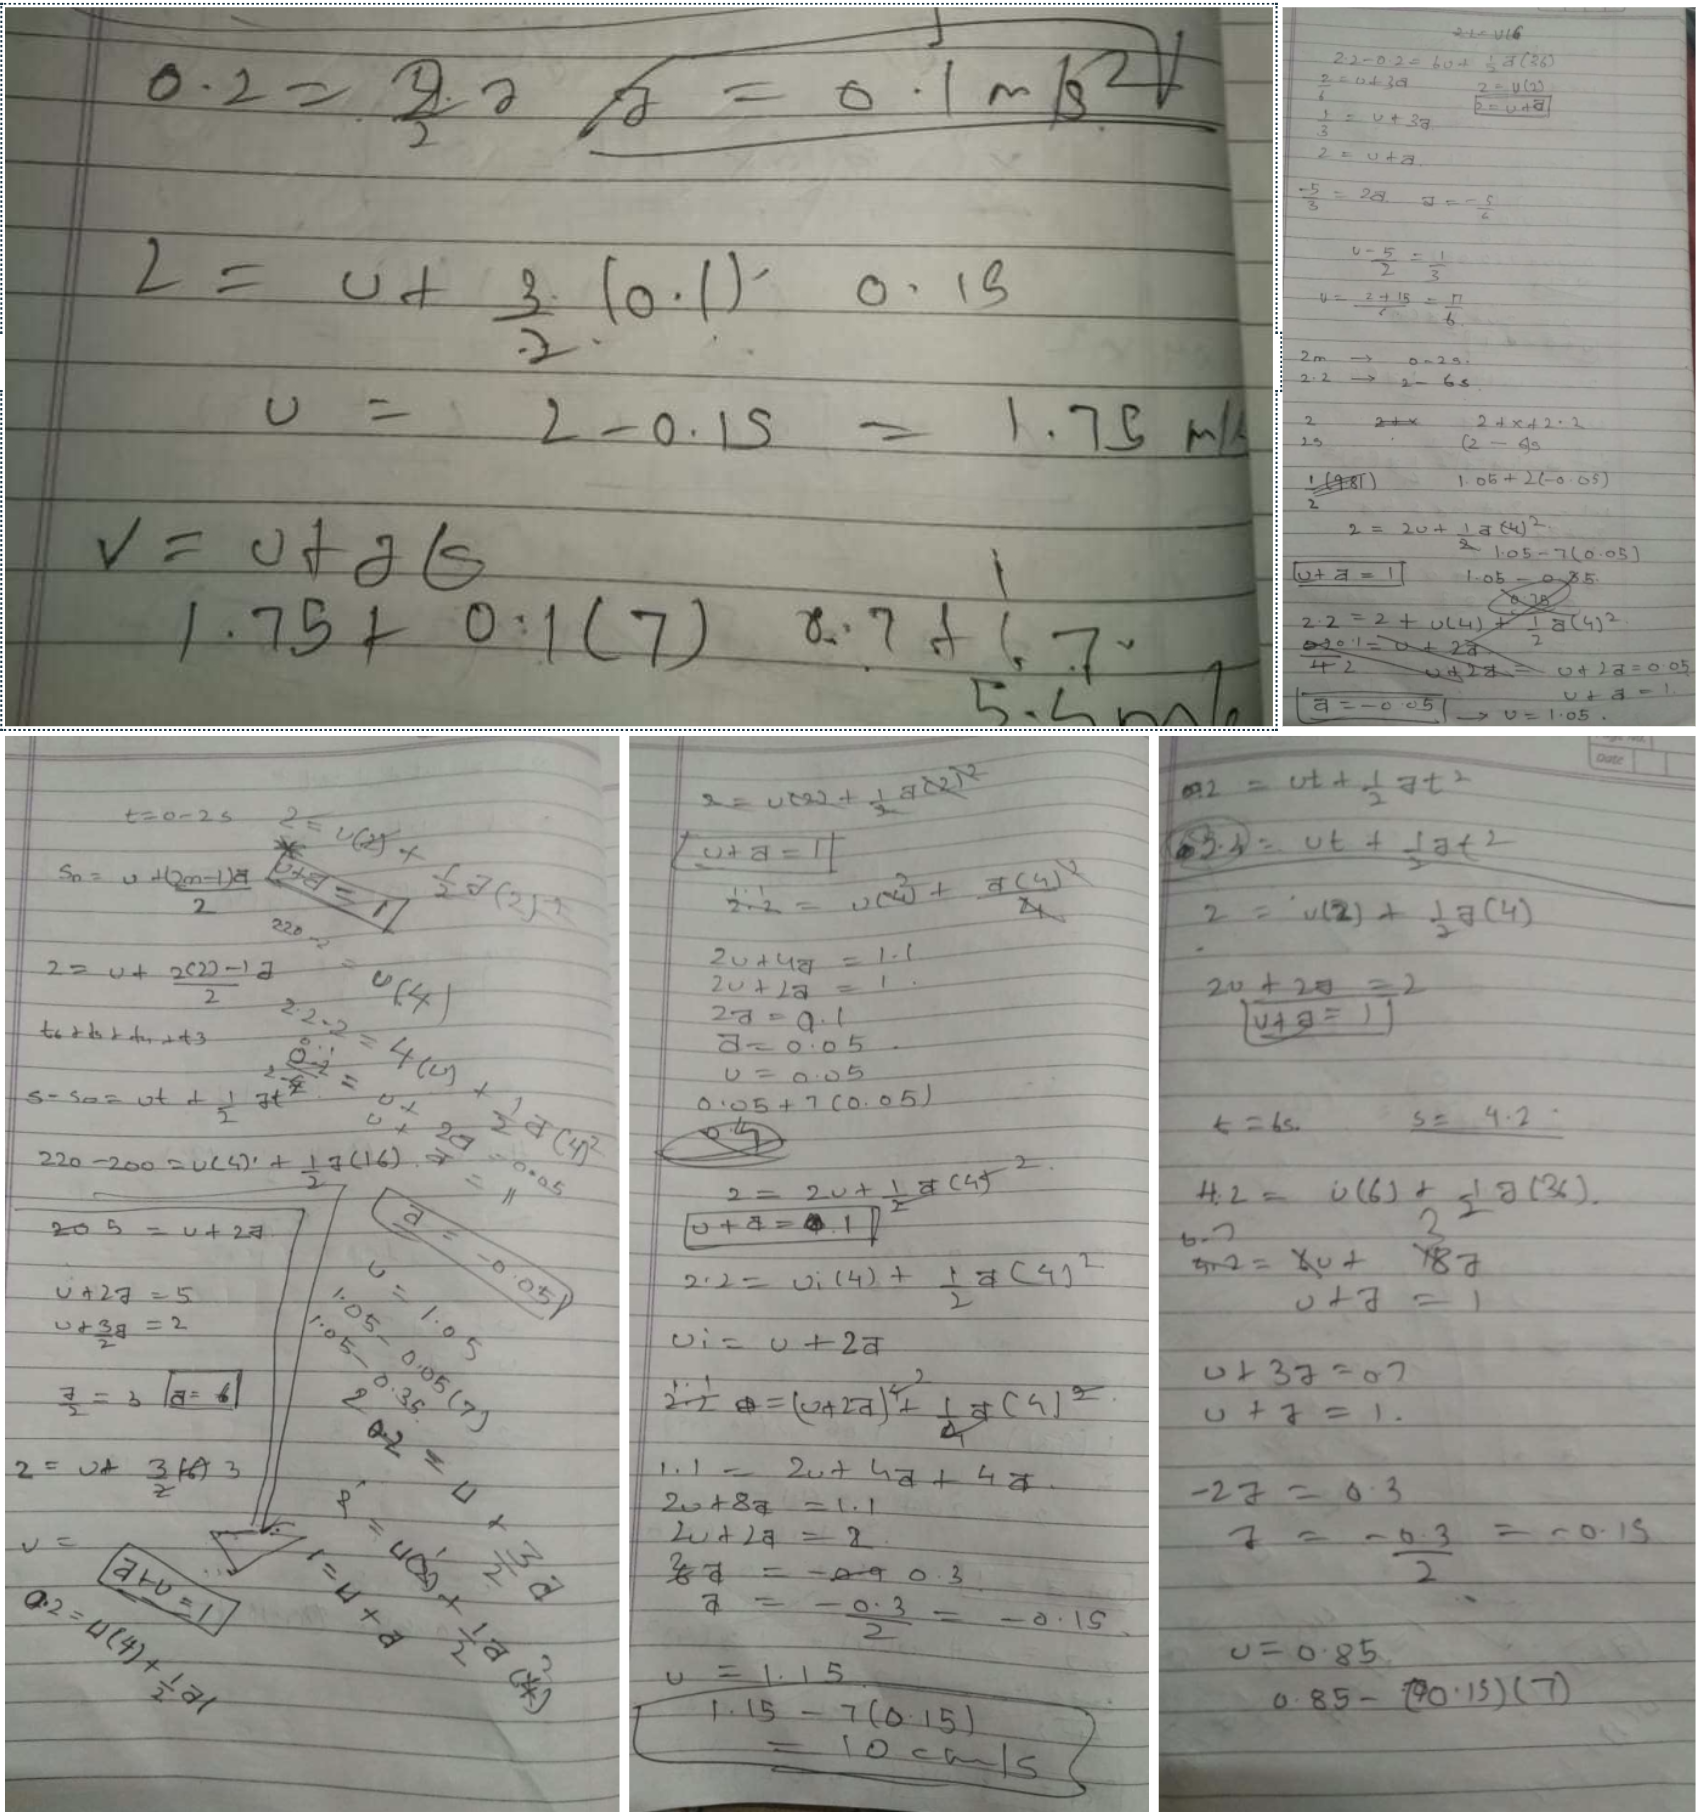 0.2 = 2/2 a a = 0.1 m/s²
2 = u + 3/2 (0.1) 0.15
u = 2 - 0.15 = 1.75 m/s
v = u + a(s
1.75 + 0.1(7) 0.7 + 1.7
5.5 m/s
2.2 - 0.2 = 6u + 1/2 a(36)
2/6 = u + 3a 2 = u(2)
2 = u + a
1/3 = u + 3a
2 = u + a
-5/3 = 2a a = -5/6
u - 5/2 = 1/3
u = 2+15/6 = 17/6
2m → 0-2s.
2.2 → 2-6s
2 2+x 2+x+2.2
2s (2-6)s
1/2(981) 1.05+2(-0.05)
2 = 2u + 1/2 a(4)²
1.05-7(0.05)
u + a = 1 1.05 - 0.35
2.2 = 2 + u(4) + 1/2 a(4)²
u + 2a = 0.05
u + a = 1
a = -0.05 → u = 1.05.
t=0-2s 2 = u(2) + 1/2 a(2)²
Sn = u + (2n-1)a/2 u+a = 1
220-2
2 = u + 2(2)-1a/2 = u(4)
2.2-2 = 4(u) + 1/2 a(4)²
s-s0 = ut + 1/2 at²
u + 2a = 0.05
220-200 = u(4) + 1/2 a(16)
a = -0.05
20 5 = u + 2a
u = 1.05
u+2a = 5
1.05 - 0.05(7)
u + 3a/2 = 2
1.05 - 0.35
a/2 = 3 a = 6
0.2 = u + 3/2 a
2 = u + 3/2 (6) 3
1 = u + a
u =
a+u = 1
0.2 = u(4) + 1/2 a(
2 = u(2) + 1/2 a(2)²
u + a = 1
2.2 = u(4) + a(4)²/2
2u + 4a = 1.1
2u + 2a = 1.
2a = 0.1
a = 0.05.
u = 0.05
0.05 + 7(0.05)
0.4
2 = 2u + 1/2 a(4)²
u + a = 1
2.2 = ui(4) + 1/2 a(4)²
ui = u + 2a
2.2 = (u+2a)4 + 1/2 a(4)²
1.1 = 2u + 4a + 4a
2u + 8a = 1.1
2u + 2a = 2
a = -0.9 0.3
a = -0.3/2 = -0.15
u = 1.15
1.15 - 7(0.15)
= 10 cm/s
Date
0.2 = ut + 1/2 at²
= ut + 1/2 at²
2 = u(2) + 1/2 a(4)
2u + 2a = 2
u + a = 1
t = 6s. s = 4.2
4.2 = u(6) + 1/2 a(36).
0.7
4.2 = 6u + 18a 3
u + a = 1
u + 3a = 0.7
u + a = 1.
-2a = 0.3
a = -0.3/2 = -0.15
u = 0.85
0.85 - (0.15)(7)